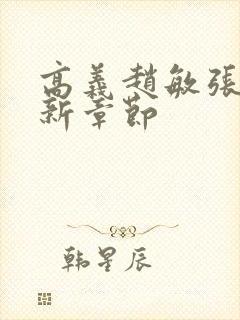 高義趙敏張
新章節
韩星辰